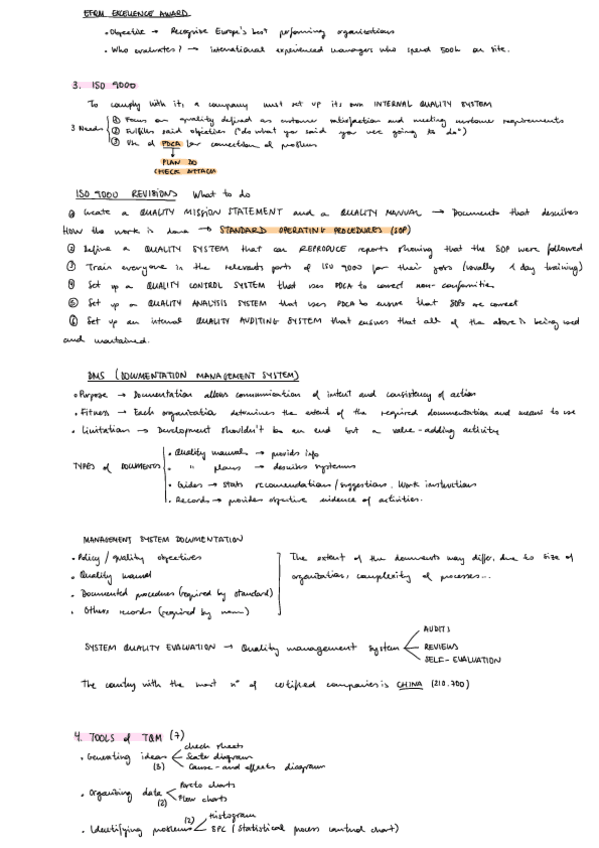 EFQM EXCELLENCE AWARD
• Objective → Recognise Europe's best performing organisations
• Who evaluates? → international experienced managers who spend 500h on site.
3. ISO 9000
To comply with it, a company must set up its own INTERNAL QUALITY SYSTEM
3 Needs
① Focus on quality defined as customer satisfaction and meeting customer requirements
② Fulfilles said objectives ("do what you said you were going to do")
③ Use of PDCA for correction of problems
PLAN DO
CHECK ATTACK
ISO 9000 REVISIONS What to do
① Create a QUALITY MISSION STATEMENT and a QUALITY MANUAL → Documents that describes
How the work is done → STANDARD OPERATING PROCEDURES (SOP)
② Define a QUALITY SYSTEM that can REPRODUCE reports showing that the SOP were followed
③ Train everyone in the relevants parts of ISO 9000 for their jobs (usually 1 day training)
④ Set up a QUALITY CONTROL SYSTEM that uses PDCA to correct non-conformities
⑤ Set up a QUALITY ANALYSIS SYSTEM that uses PDCA to ensure that SOPs are correct
⑥ Set up an internal QUALITY AUDITING SYSTEM that ensures that all of the above is being used
and maintained.
DMS (DOCUMENTATION MANAGEMENT SYSTEM)
• Purpose → Documentation allows communication of intent and consistency of action
• Fitness → Each organization determines the extent of the required documentation and means to use
• Limitation → Development shouldn't be an end but a value-adding activity
TYPES of DOCUMENTS
• Quality manuals → provids info
• " plans → describes systems
• Guides → stats recomendations/suggestions. Work instructions
• Records → provides objective evidence of activities.
MANAGEMENT SYSTEM DOCUMENTATION
• Policy / quality objectives
• Quality manual
• Documented procedures (required by standard)
• Others, records (required by norm)
The extent of the documents may differ, due to size of
organization, complexity of processes...
SYSTEM QUALITY EVALUATION → Quality management system
AUDITS
REVIEWS
SELF-EVALUATION
The country with the most nº of certified companies is CHINA (210.700)
4. TOOLS of TQM (7)
• Generating ideas (3)
check sheets
Scater diagram
Cause-and effects diagram
• Organizing data (2)
Pareto charts
Flow charts
• Identifying problems (2)
Histogram
SPC (Statistical process control chart)